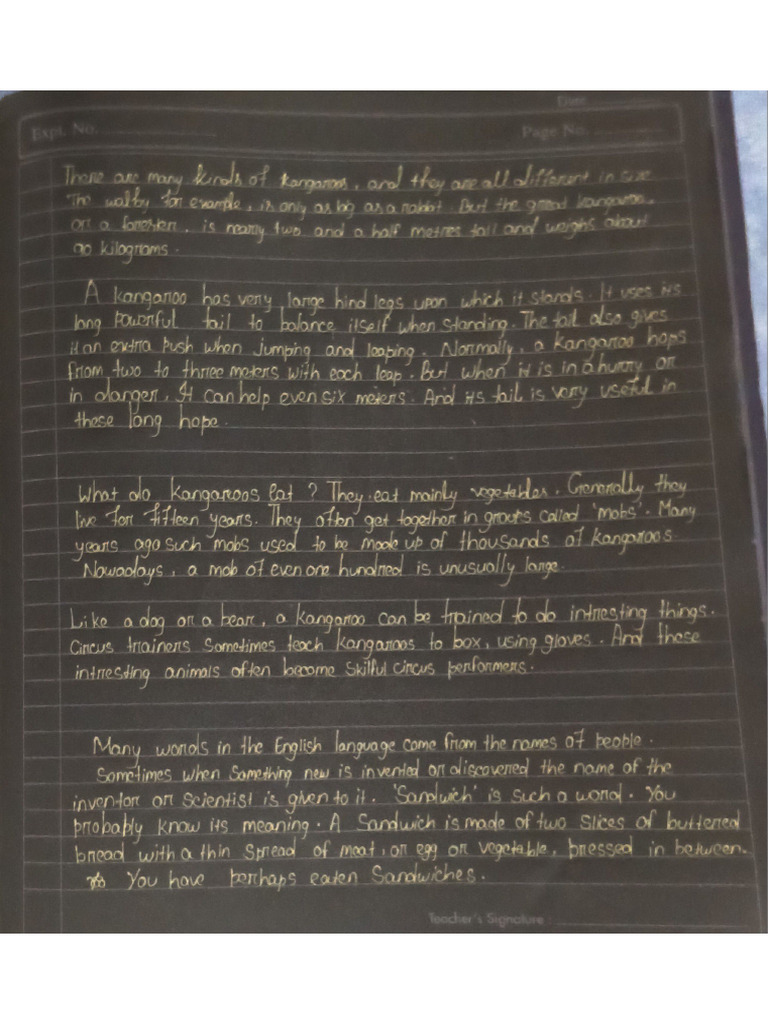 Date
Expt. No.
Page No.
There are many kinds of kangaroos, and they are all different in size
The walby for example, is only as big as a rabbit. But the great kangaroo,
or a forester, is nearly two and a half metres tall and weighs about
90 kilograms.
A kangaroo has very large hind legs upon which it stands. It uses its
long powerful tail to balance itself when standing. The tail also gives
it an extra push when jumping and leaping. Normally, a kangaroo hops
from two to three meters with each leap. But when it is in a hurry or
in danger, It can help even six meters. And its tail is very useful in
these long hope.
What do kangaroos Eat ? They eat mainly vegetables. Generally they
live for fifteen years. They often get together in groups called 'mobs'. Many
years ago such mobs used to be made up of thousands of kangaroos.
Nowadays, a mob of even one hundred is unusually large.
Like a dog or a bear, a kangaroo can be trained to do intresting things.
Circus trainers sometimes teach kangaroos to box, using gloves. And these
intresting animals often become skilful circus performers.
Many words in the English language come from the names of people.
Sometimes when something new is invented or discovered the name of the
inventor or scientist is given to it. 'Sandwich' is such a word. You
probably know its meaning. A Sandwich is made of two slices of buttered
bread with a thin spread of meat, or egg or vegetable, pressed in between.
You have perhaps eaten Sandwiches.
Teacher's Signature :